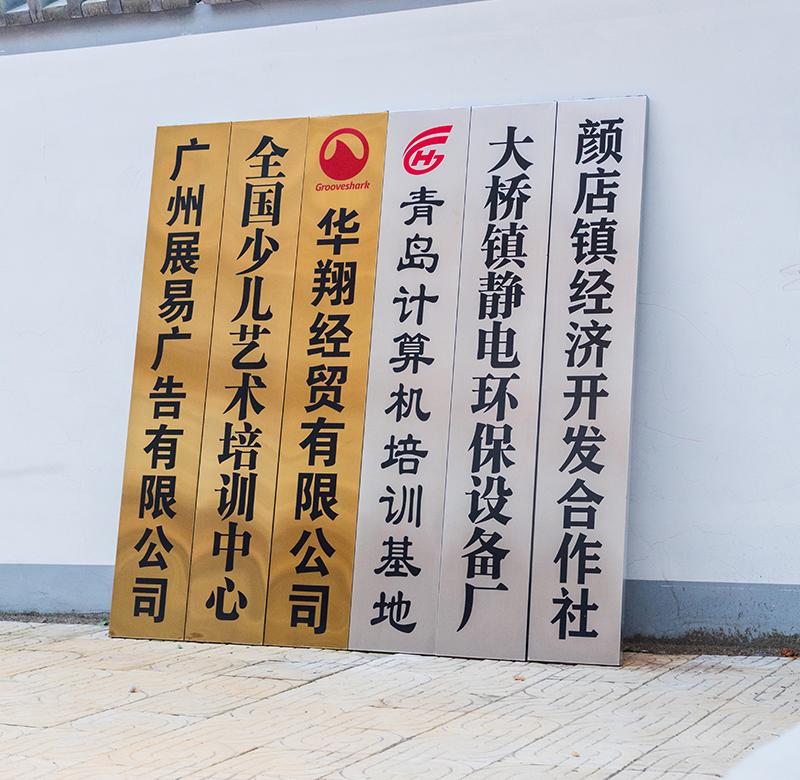 广州展易广告有限公司
全国少儿艺术培训中心
Grooveshark
华翔经贸有限公司
HG
青岛计算机培训基地
大桥镇静电环保设备厂
颜店镇经济开发合作社